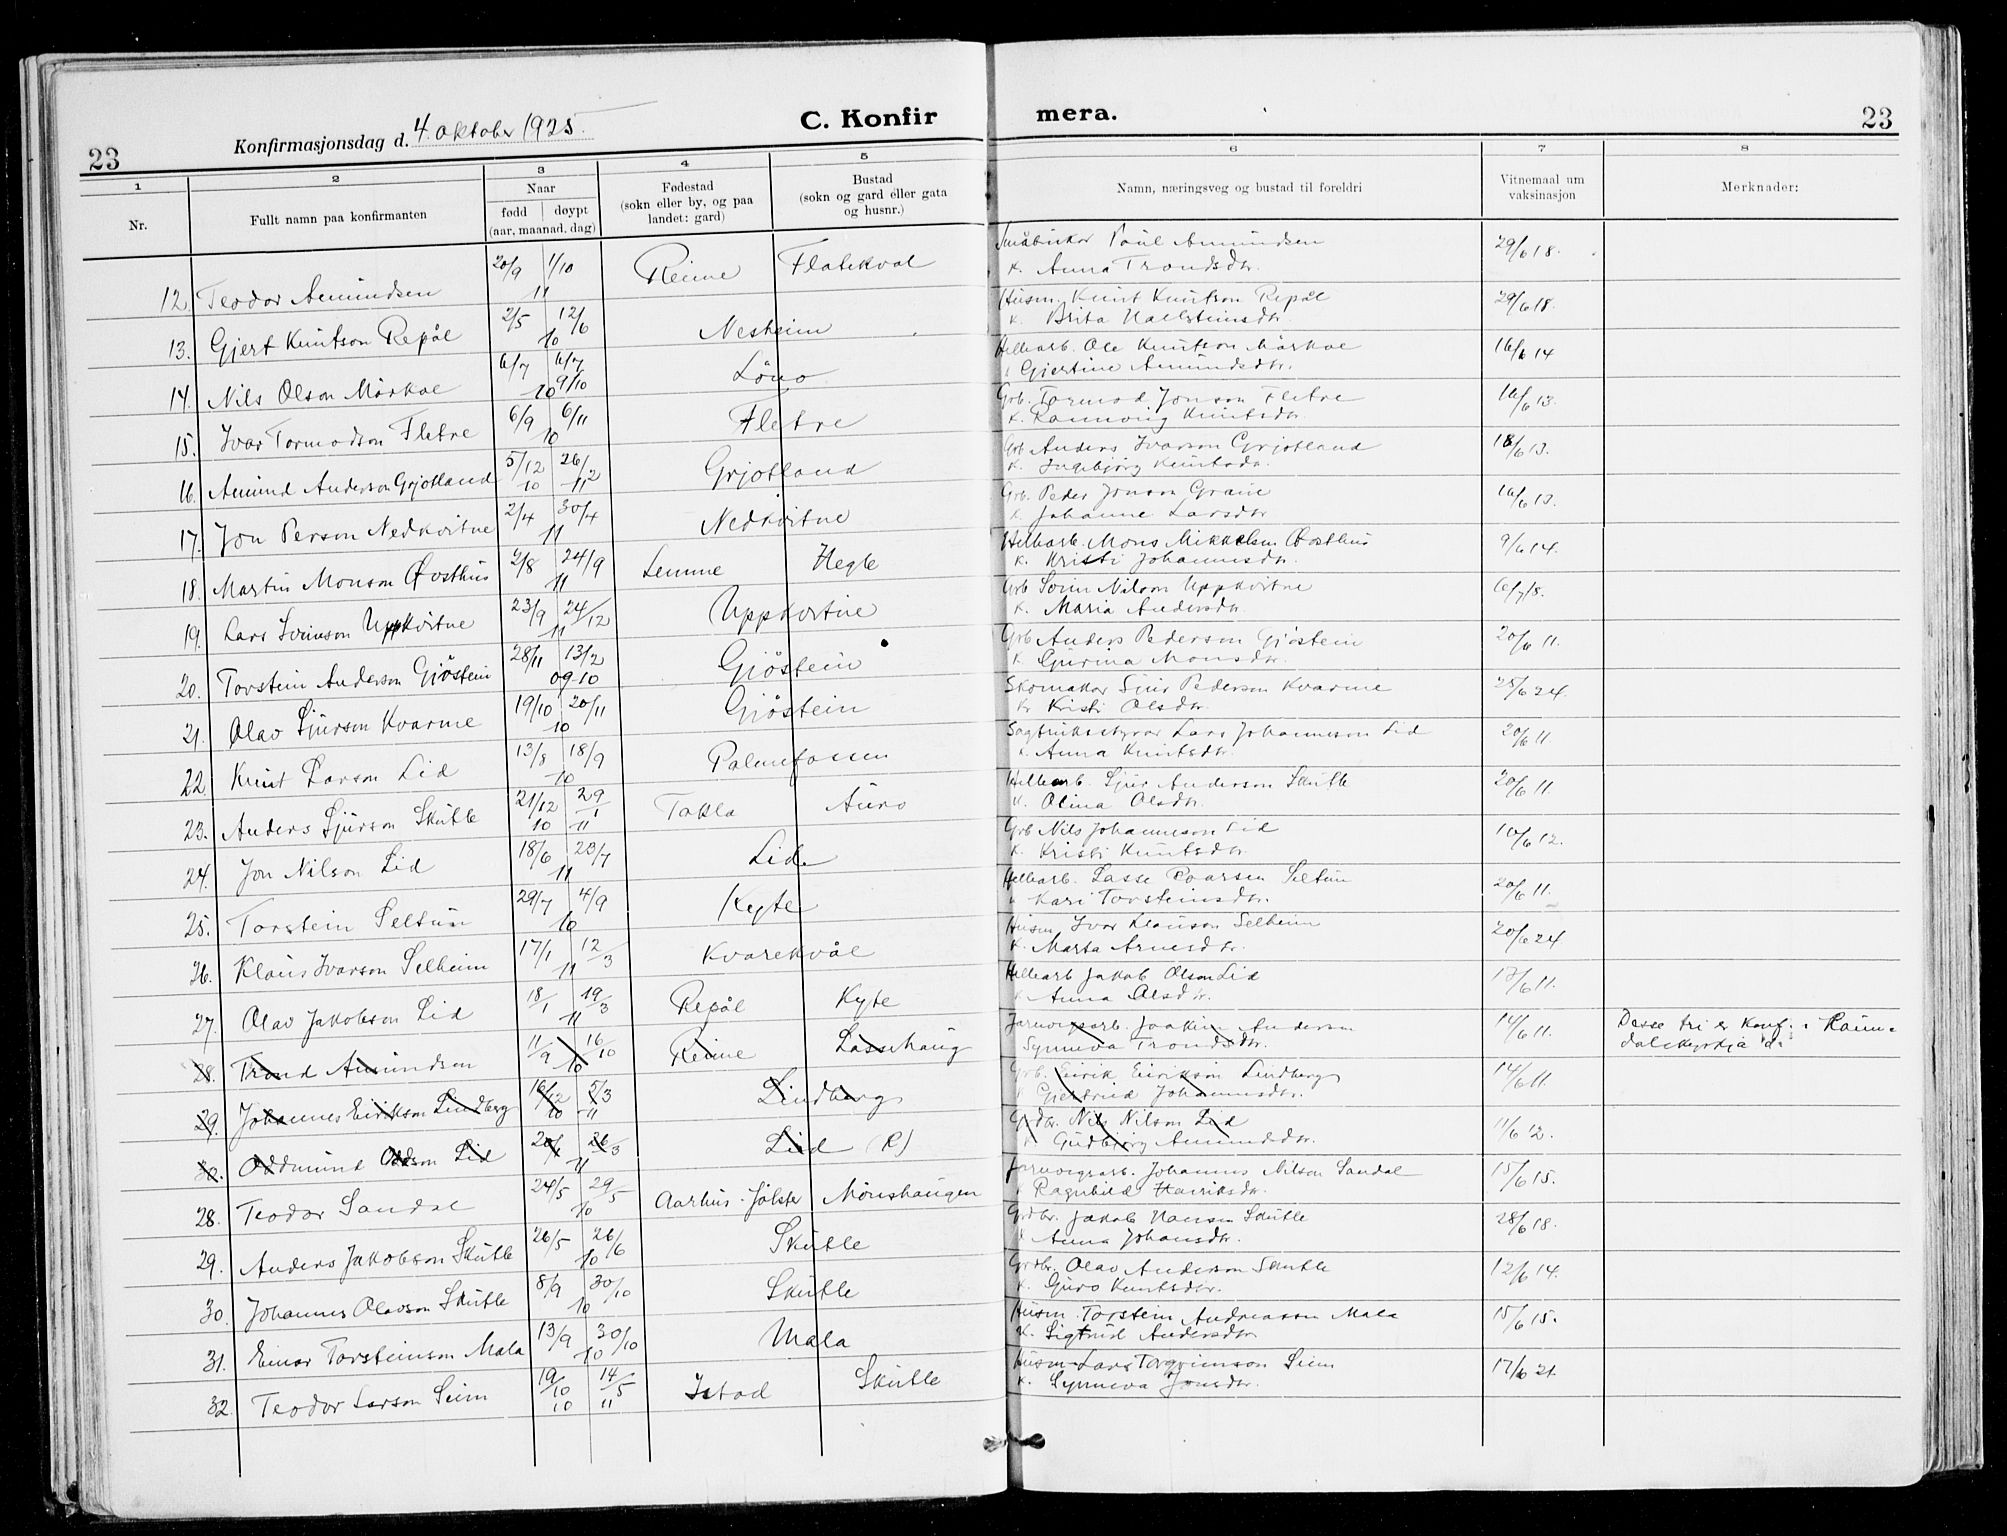 23
Konfirmasjonsdag d. 4 oktober 1925.
C. Konfir
mera.
23
1
2
3
4
5
6
7
8
Nr.
Fullt namn paa konfirmanten
Naar
fødd | døypt
(aar, maanad, dag)
Fødestad
(sokn eller by, og paa
landet: gard)
Bustad
(sokn og gard eller gata
og husnr.)
Namn, næringsveg og bustad til foreldri
Vitnemaal um
vaksinasjon
Merknader:
12. Teodor Amundsen 20/9 1/10 11 Reime Flatekval Småbrukar Paul Amundsen 29/6 18.
k. Anna Trondsdtr.
13. Gjert Knutson Repål 2/5 12/6 10 Nesheim Husm. Knut Knutson Repål 29/6 18.
k. Brita Hallsteinsdtr.
14. Nils Olson Mörkve 6/7 10 9/10 Löno Hellearb. Ole Knutson Mörkve 16/6 14
k. Gjertine Amundsdtr.
15. Ivar Tormodson Fletre 6/9 6/11 10 Fletre Grb. Tormod Jonson Fletre 16/6 13.
k. Rannveig Knutsdtr.
16. Amund Anderson Grjotland 5/12 10 26/2 11 Grjotland Grb Anders Ivarson Grjotland 18/6 13.
k. Ingebjörg Knutsdtr.
17. Jon Person Nedkvitne 2/4 30/4 11 Nedkvitne Grb. Peder Jonson 16/6 13.
k. Johanne Larsdtr
18. Martin Monson Øvsthus 2/8 24/9 11 Lemme Hegle Hellearb. Mons Mikkelsen Øvsthus 9/6 14.
k. Kristi Johannesdtr.
19. Lars Sveinson Uppkvitne 23/9 24/12 11 Uppkvitne Grb Svein Nilson Uppkvitne 6/7 18.
k. Maria Andersdtr.
20. Torstein Anderson Gjöstein 28/11 13/2 09-10 Gjöstein Grb Anders Pederson Gjöstein 20/6 11.
k. Gurina Monsdtr.
21. Olav Sjurson Kvarme 19/10 20/11 10 Gjöstein Skomakar Sjur Pederson Kvarme 25/6 24.
k. Kristi Olsdtr.
22. Knut Larson Lid 13/8 18/9 10 Palmefossen Sagbruksstyrar Lars Johanneson Lid 20/6 11.
k. Anna Knutsdtr.
23. Anders Sjurson Skutle 21/12 10 29/1 11 Takla Auro Hellearb. Sjur Anderson Skutle 20/6 11.
k. Olina Olsdtr.
24. Jon Nilson Lid 18/6 23/7 11 Lid Grb Nils Johanneson Lid 10/6 12.
k. Kristi Knutsdtr.
25. Torstein Seltun 29/7 4/9 10 Kyte Hellearb. Lasse Seltun 20/6 11.
k. Kari Torsteinsdtr.
26. Klaus Ivarson Selheim 17/1 12/3 11 Kvarekvål Husm Ivar Klauson Selheim 20/6 24
k. Marta Arnesdtr.
27. Olav Jakobson Lid 18/1 19/3 11 Repål Kyte Hellearb Jakob Olson Lid 17/6 11.
k. Anna Olsdtr.
28. Trond Amundsen 11/9 16/10 10 Reime Lassehaug Jarnvegsarb. Joakim Anderson 14/6 11. Desse tri er konf. i Raun-
Synneva Trondsdtr. dalskyrkja
29. Johannes Eirikson Lindberg 16/12 10 5/3 11 Lindberg Grb. Eirik Eirikson Lindberg 14/6 11.
Gjertrud Johannesdtr.
30. Oddmund Lid 26/3 11 Lid (R) Grdbr. Nils Nilson Lid 11/6 12.
k. Gudbjörg Amundsdtr.
28. Teodor Sandal 24/5 29/5 10 Aarhus. Jölster Mönshaugen Jarnvegsarb. Johannes Nilson Sandal 15/6 15.
k. Ragnhild Henriksdtr.
29. Anders Jakobson Skutle 26/5 26/6 10 Skutle Grdbr. Jakob Hanson Skutle 28/6 18.
k. Anna Johansdtr.
30. Johannes Olavson Skutle 8/9 30/10 10 Skutle Grdbr. Olav Anderson Skutle 12/6 14.
k. Guro Knutsdtr.
31. Einar Torsteinson Mala 13/9 30/10 10 Mala Husm. Torstein Andreasson Mala 15/6 15.
k. Sigtrud Andersdtr
32. Teodor Larson Seim 19/10 10 14/5 11 Istad Skutle Husm Lars Torgrimson Seim 17/6 21.
k. Synneva Jonsdtr.